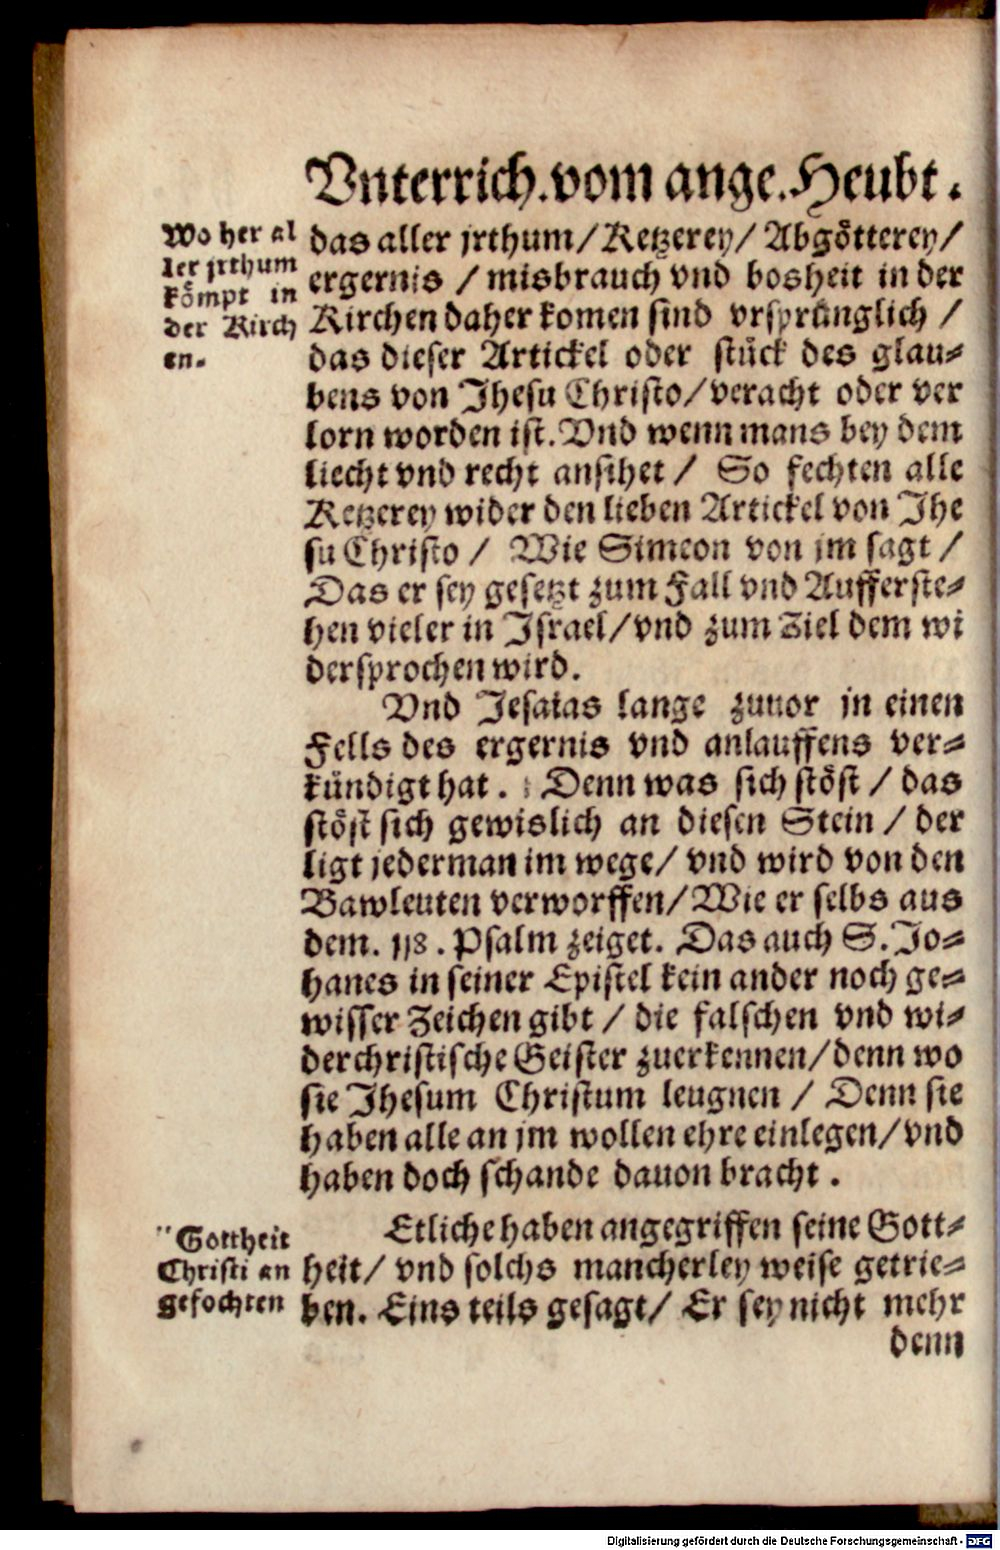 Vnterrich.vom ange.Heubt.
Wo her al
ler jrthum
kömpt in
der Kirch
en.
das aller jrthum/Ketzerey/Abgötterey/
ergernis / misbrauch vnd bosheit in der
Kirchen daher komen sind vrsprünglich /
das dieser Artickel oder stück des glau-
bens von Jhesu Christo/veracht oder ver
lorn worden ist.Vnd wenn mans bey dem
liecht vnd recht ansihet / So fechten alle
Ketzerey wider den lieben Artickel von Jhe
su Christo / Wie Simeon von jm sagt /
Das er sey gesetzt zum Fall vnd Aufferste-
hen vieler in Jsrael/vnd zum Ziel dem wi
dersprochen wird.
Vnd Jesaias lange zuuor jn einen
Fells des ergernis vnd anlauffens ver-
kündigt hat. Denn was sich stöst / das
stöst sich gewislich an diesen Stein / der
ligt jederman im wege/ vnd wird von den
Bawleuten verworffen/Wie er selbs aus
dem. 118. Psalm zeiget. Das auch S.Jo-
hanes in seiner Epistel kein ander noch ge-
wisser Zeichen gibt / die falschen vnd wi-
derchristische Geister zuerkennen/denn wo
sie Jhesum Christum leugnen / Denn sie
haben alle an jm wollen ehre einlegen/vnd
haben doch schande dauon bracht.
"Gottheit
Christi an
gefochten
Etliche haben angegriffen seine Gott-
heit/ vnd solchs mancherley weise getrie-
ben. Eins teils gesagt/ Er sey nicht mehr
denn
Digitalisierung gefördert durch die Deutsche Forschungsgemeinschaft - DFG